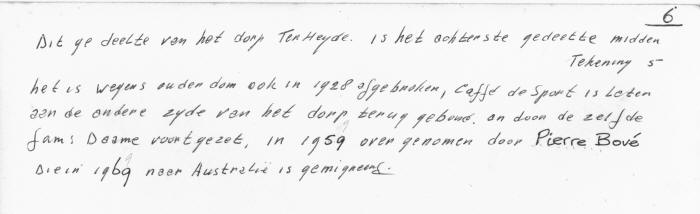 6
Dit ge deelte van het dorp TerHeyde. is het achterste gedeelte midden
Tekening 5
het is wegens ouderdom ook in 1928 afgebroken, Caffé de Sport is Later
aan de andere zyde van het dorp terug gebouwd. en door de zelfde
fam: Daame voortgezet, in 1959 over genomen door Pierre Bové
Die in 1969 naar Australië is gemigreerd.